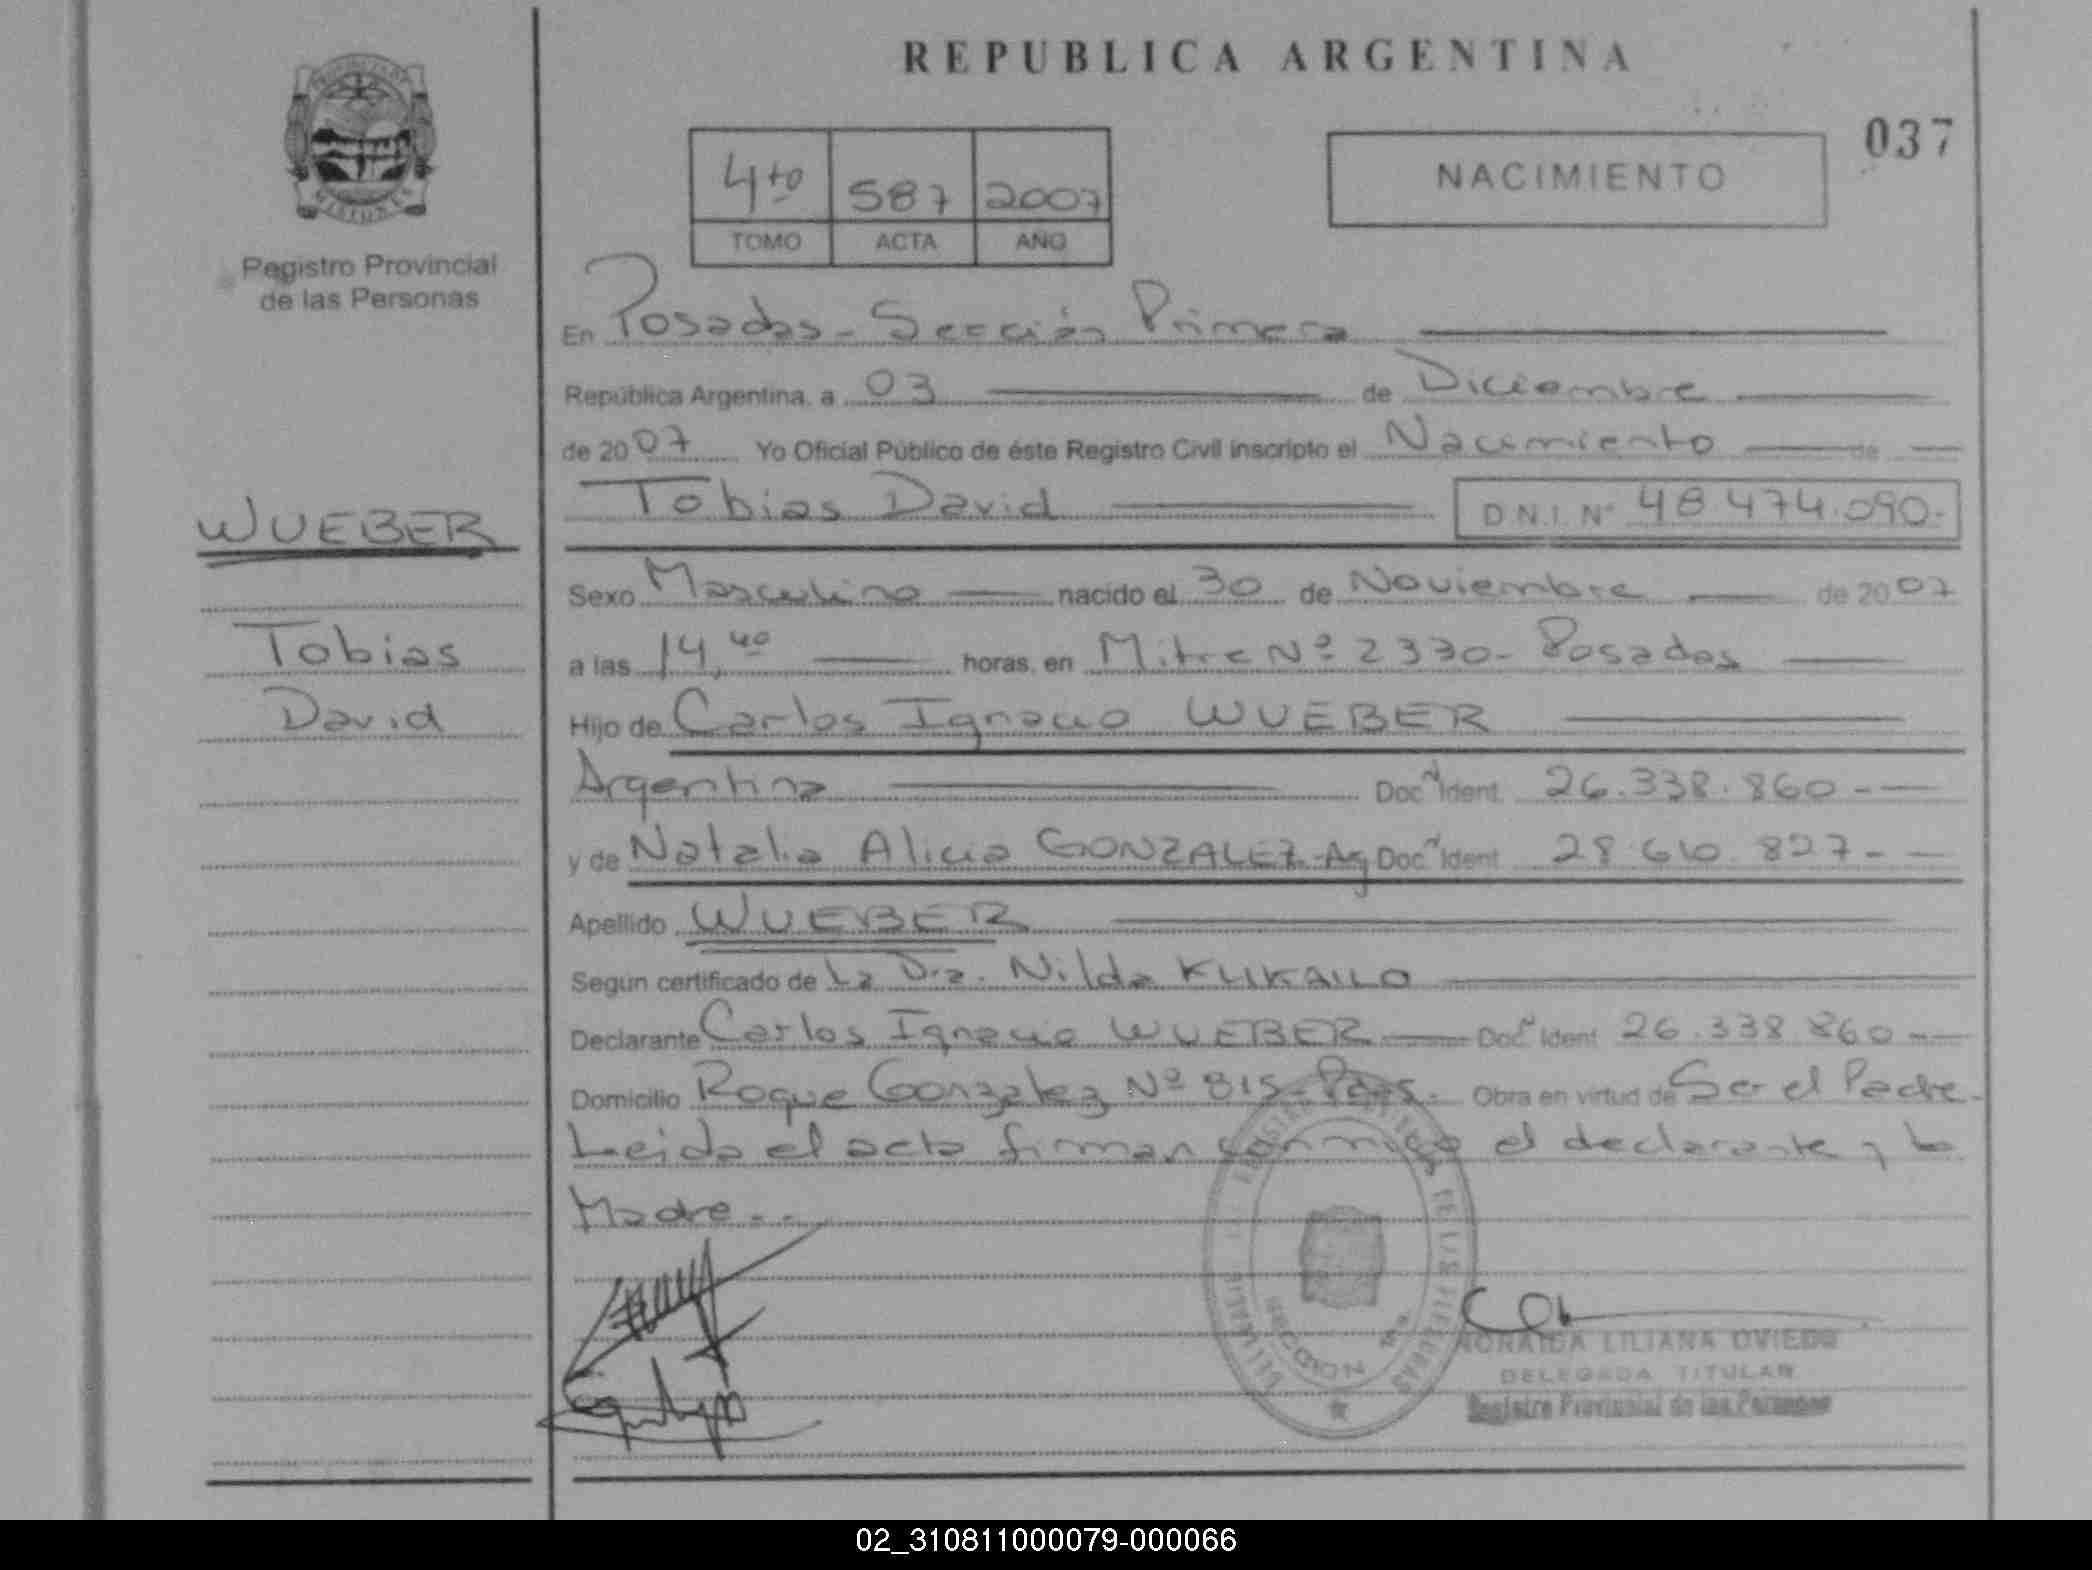 REPUBLICA ARGENTINA
037
4to 587 2007
TOMO ACTA AÑO
NACIMIENTO
MISIONES
Registro Provincial
de las Personas
En Posadas - Sección Primera
República Argentina, a 03 de Diciembre
de 2007 Yo Oficial Público de éste Registro Civil inscripto el Nacimiento de
Tobias David D.N.I. Nº 48.474.090.-
WUEBER
Tobias
David
Sexo Masculino nacido el 30 de Noviembre de 2007
a las 14,40 horas, en Mitre Nº 2370 - Posadas
Hijo de Carlos Ignacio WUEBER
Argentina Doc. Ident. 26.338.860 --
y de Natalia Alicia GONZALEZ - Ag Doc. Ident 28.610.827 - -
Apellido WUEBER
Segun certificado de La Dra. Nilda
Declarante Carlos Ignacio WUEBER Doc. Ident 26.338.860 --
Domicilio Roque Gonzalez Nº 815 - Pdas. Obra en virtud de Ser el Padre.
Leida el acta firman conmigo el declarante y la
Madre. -
SECCION 1ra
LILIANA OVIEDO
DELEGADA TITULAR
Registro Provincial de las Personas
02_310811000079-000066